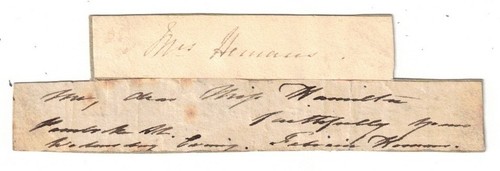 Mrs Hemans.
me, dear Miss Hamilton
Faithfully yours
Pembroke St.
Wednesday Evening. Felicia Hemans.